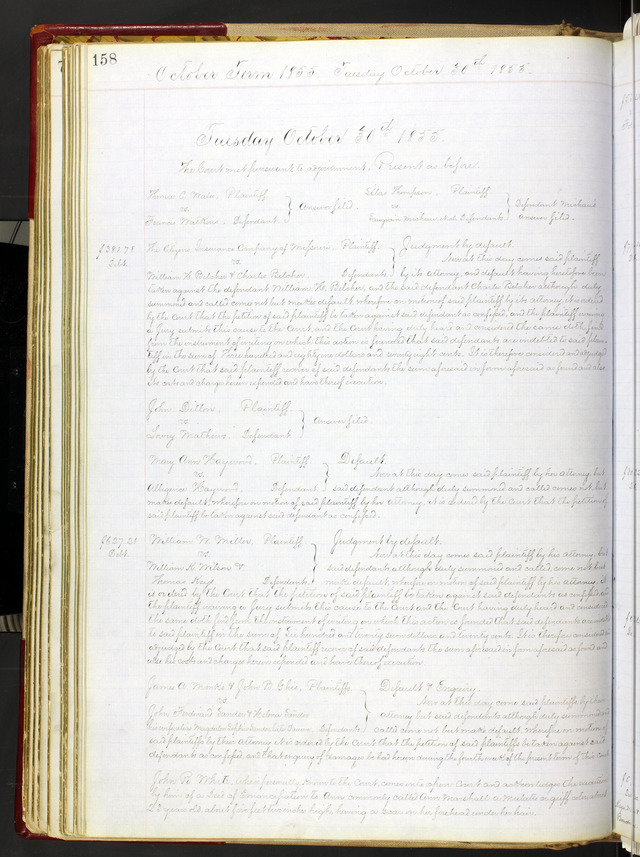 158
October Term 1855. Tuesday October 30th 1855.
Tuesday October 30th 1855
The Court met pursuant to adjournment, Present as before.
Thomas C. Plaintiff
vs.
Defendant
Answer filed.
Silas Thompson, Plaintiff
vs.
Defendants
Defendant
answer filed.
$381.78
Debt.
The Citizens Insurance Company of Missouri, Plaintiff
vs.
William H. Belcher & Charles Belcher, Defendants
Judgment by default.
Now at this day comes said plaintiff
by its attorney, and default having heretofore been
taken against the defendant William H. Belcher, and the said defendant Charles Belcher although duly
summoned and called comes not but makes default, wherefore on motion of said plaintiff by its attorney, it is ordered
by the Court that the petition of said plaintiff be taken against said defendant as confessed, and the plaintiff waiving
a Jury submits this cause to the Court and the Court having duly heard and considered the same doth find
from the instrument of writing on which this action is founded that said defendants are indebted to said plain-
tiff in the sum of Three hundred and eighty one dollars and seventy eight cents. It is therefore considered and adjudged
by the Court that said plaintiff recover of said defendants the sum aforesaid in form aforesaid as found and also
its costs and charges herein expended and have thereof execution.
John Dillon, Plaintiff
vs.
Mathews, Defendant
Answer filed.
Mary Ann Haywood, Plaintiff
vs.
Haywood, Defendant
Default.
Now at this day comes said plaintiff by her attorney, but
said defendant although duly summoned and called comes not, but
makes default, wherefore on motion of said plaintiff by her attorney, it is ordered by the Court that the petition of
said plaintiff be taken against said defendant as confessed.
$627.20
Debt.
William W. Miller, Plaintiff
vs.
William K. Wilson &
Thomas Keys Defendants
Judgment by default.
Now at this day comes said plaintiff by his attorney, but
said defendants although duly summoned and called, come not but
make default, wherefore on motion of said plaintiff by his attorney, it
is ordered by the Court that the petition of said plaintiff be taken against said defendants as confessed and
the plaintiff waiving a Jury submits this cause to the Court and the Court having duly heard and considered
the same, doth find from the instrument of writing on which this action is founded that said defendants are indebted
to said plaintiff in the sum of Six hundred and twenty seven dollars and twenty cents. It is therefore considered and
adjudged by the Court that said plaintiff recover of said defendants the sum aforesaid in form aforesaid as found and
also his costs and charges herein expended and have thereof execution.
James A. & John B. Ghio, Plaintiffs
vs.
John Ferdinand &
Defendants
Default & Enquiry.
Now at this day come said plaintiffs by their
attorney but said defendants although duly summoned and
called come not but make default. Wherefore on motion of
said plaintiffs by their attorney it is ordered by the Court that the petition of said plaintiffs be taken against said
defendants as confessed, and that enquiry of damages be had herein during the fourth week of the present term of this Court
John R. White, who is personally known to the Court comes into open Court and acknowledges the execution
by him of a Deed of Emancipation to Ann commonly called Ann Marshall a Mulatto or griff color about
23 years old about five feet two inches high, having a scar on her forehead under her hair.